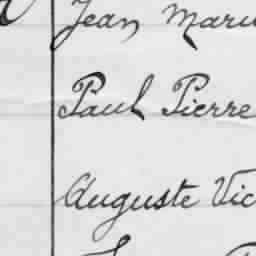 Jean Mari
Paul Pierre
Auguste Vic